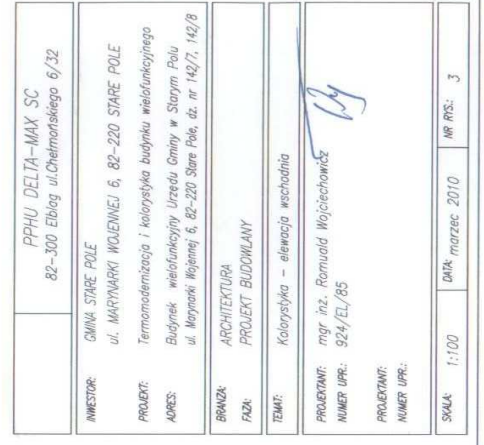 PPHU DELTA-MAX SC
82-300 Elbląg ul.Chełmońskiego 6/32
INWESTOR: GMINA STARE POLE
ul. MARYNARKI WOJENNEJ 6, 82-220 STARE POLE
PROJEKT: Termomodernizacja i kolorystyka budynku wielofunkcyjnego
ADRES: Budynek wielofunkcyjny Urzędu Gminy w Starym Polu
ul. Marynarki Wojennej 6, 82-220 Stare Pole, dz. nr 142/7, 142/8
BRANŻA: ARCHITEKTURA
FAZA: PROJEKT BUDOWLANY
TEMAT: Kolorystyka - elewacja wschodnia
PROJEKTANT: mgr inż. Romuald Wojciechowicz
NUMER UPR.: 924/EL/85
PROJEKTANT:
NUMER UPR.:
SKALA: 1:100 DATA: marzec 2010 NR RYS.: 3